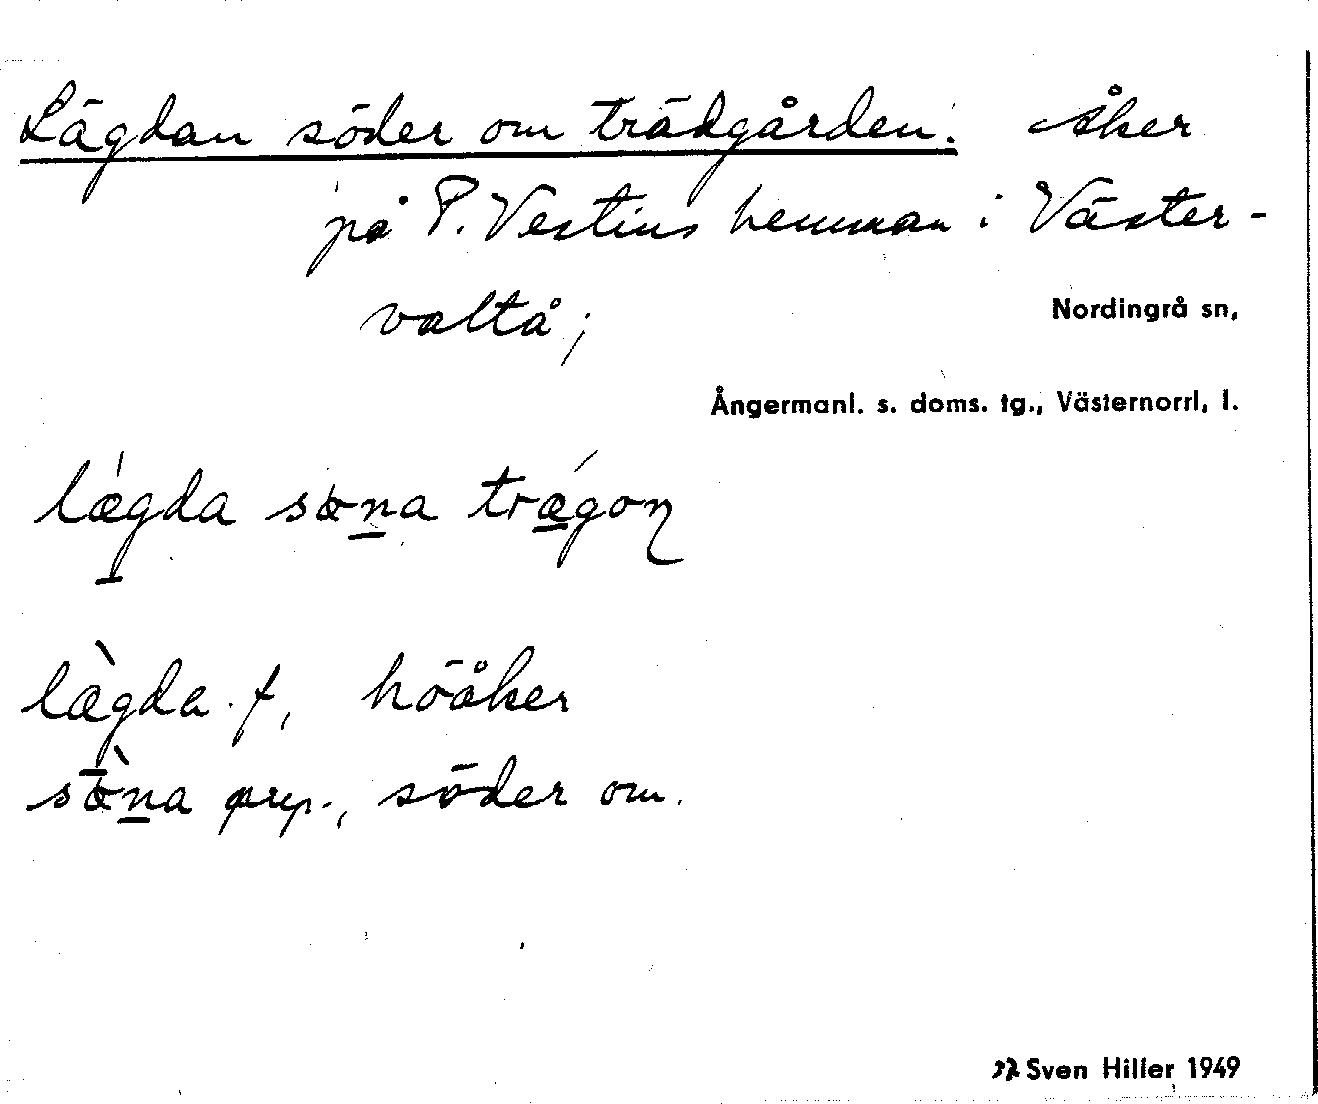 Lägdan söder om trädgården. åker
på P. Vestins hemman i Väster-
valtå;
Nordingrå sn,
Ångermanl. s. doms. tg., Västernorrl. l.
lægda søna trægoɳ
lægda f, höåker
søna prep., söder om.
Sven Hiller 1949